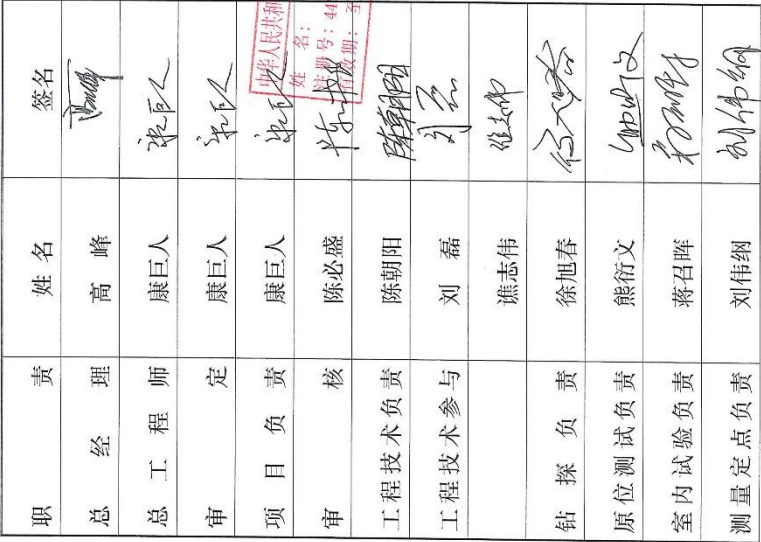 职责 姓名 签名
总经理 高峰
总工程师 康巨人 康巨人
审定 康巨人 康巨人
项目负责 康巨人 康巨人
审核 陈必盛
工程技术负责 陈朝阳 陈朝阳
工程技术参与 刘磊 刘磊
谯志伟 谯志伟
钻探负责 徐旭春
原位测试负责 熊衍文
室内试验负责 蒋召晖
测量定点负责 刘伟纲 刘伟纲
中华人民共和
姓名:
注册号: 44
有效期: 至